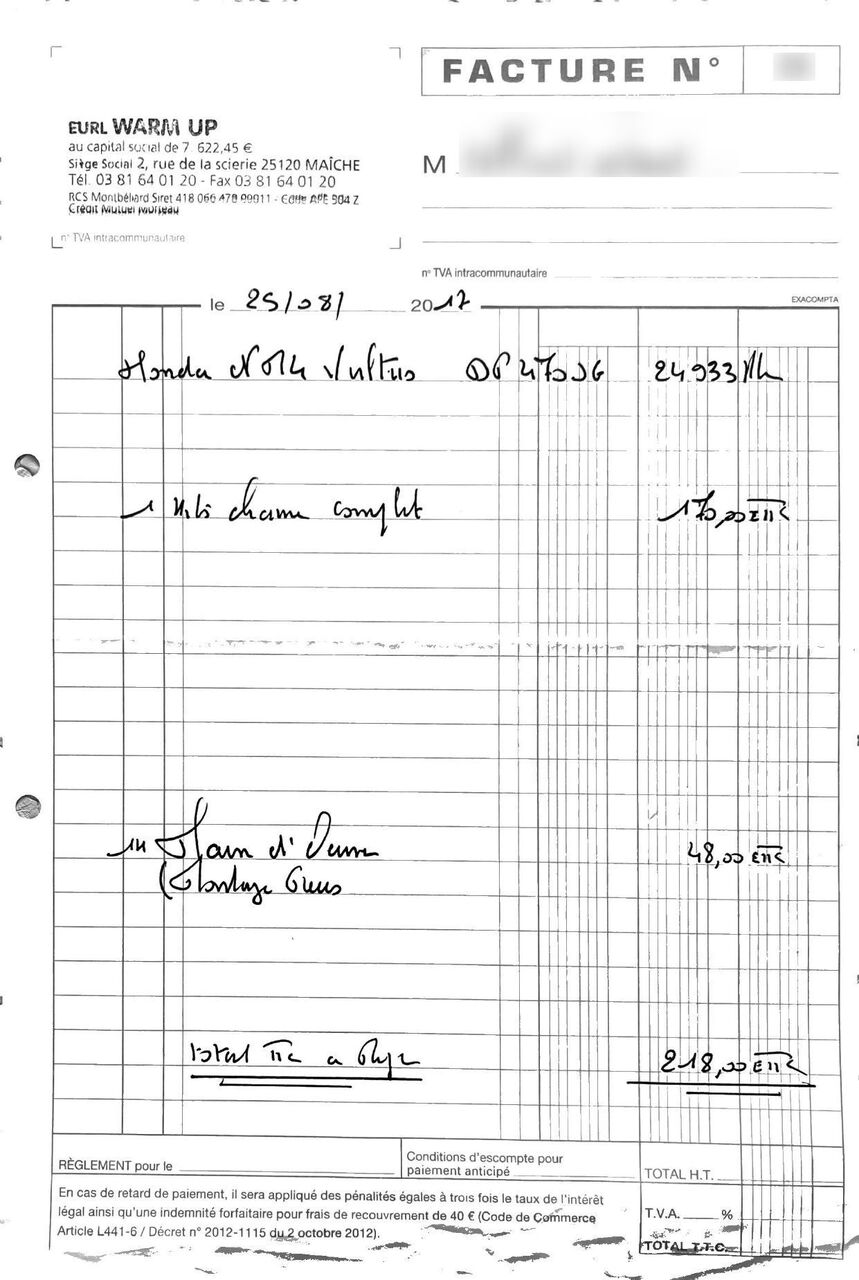 FACTURE N°
EURL WARM UP
au capital social de 7 622,45 €
Siège Social 2, rue de la scierie 25120 MAÎCHE
Tél. 03 81 64 01 20 - Fax 03 81 64 01 20
RCS Montbéliard Siret 418 066 478 00011 - Code APE 504 Z
Crédit Mutuel Morteau
n° TVA intracommunautaire
M
n° TVA intracommunautaire
le 25/08/ 2017
EXACOMPTA
Honda Vultus 24933
1 Kit chaine complet 170,00 € TTC
1H Main d'Oeuvre 48,00 € TTC
(Montage
Total TTC a 218,00 € TTC
RÈGLEMENT pour le
Conditions d'escompte pour
paiement anticipé
TOTAL H.T.
En cas de retard de paiement, il sera appliqué des pénalités égales à trois fois le taux de l'intérêt
légal ainsi qu'une indemnité forfaitaire pour frais de recouvrement de 40 € (Code de Commerce
Article L441-6 / Décret n° 2012-1115 du 2 octobre 2012).
T.V.A. %
TOTAL T.T.C.